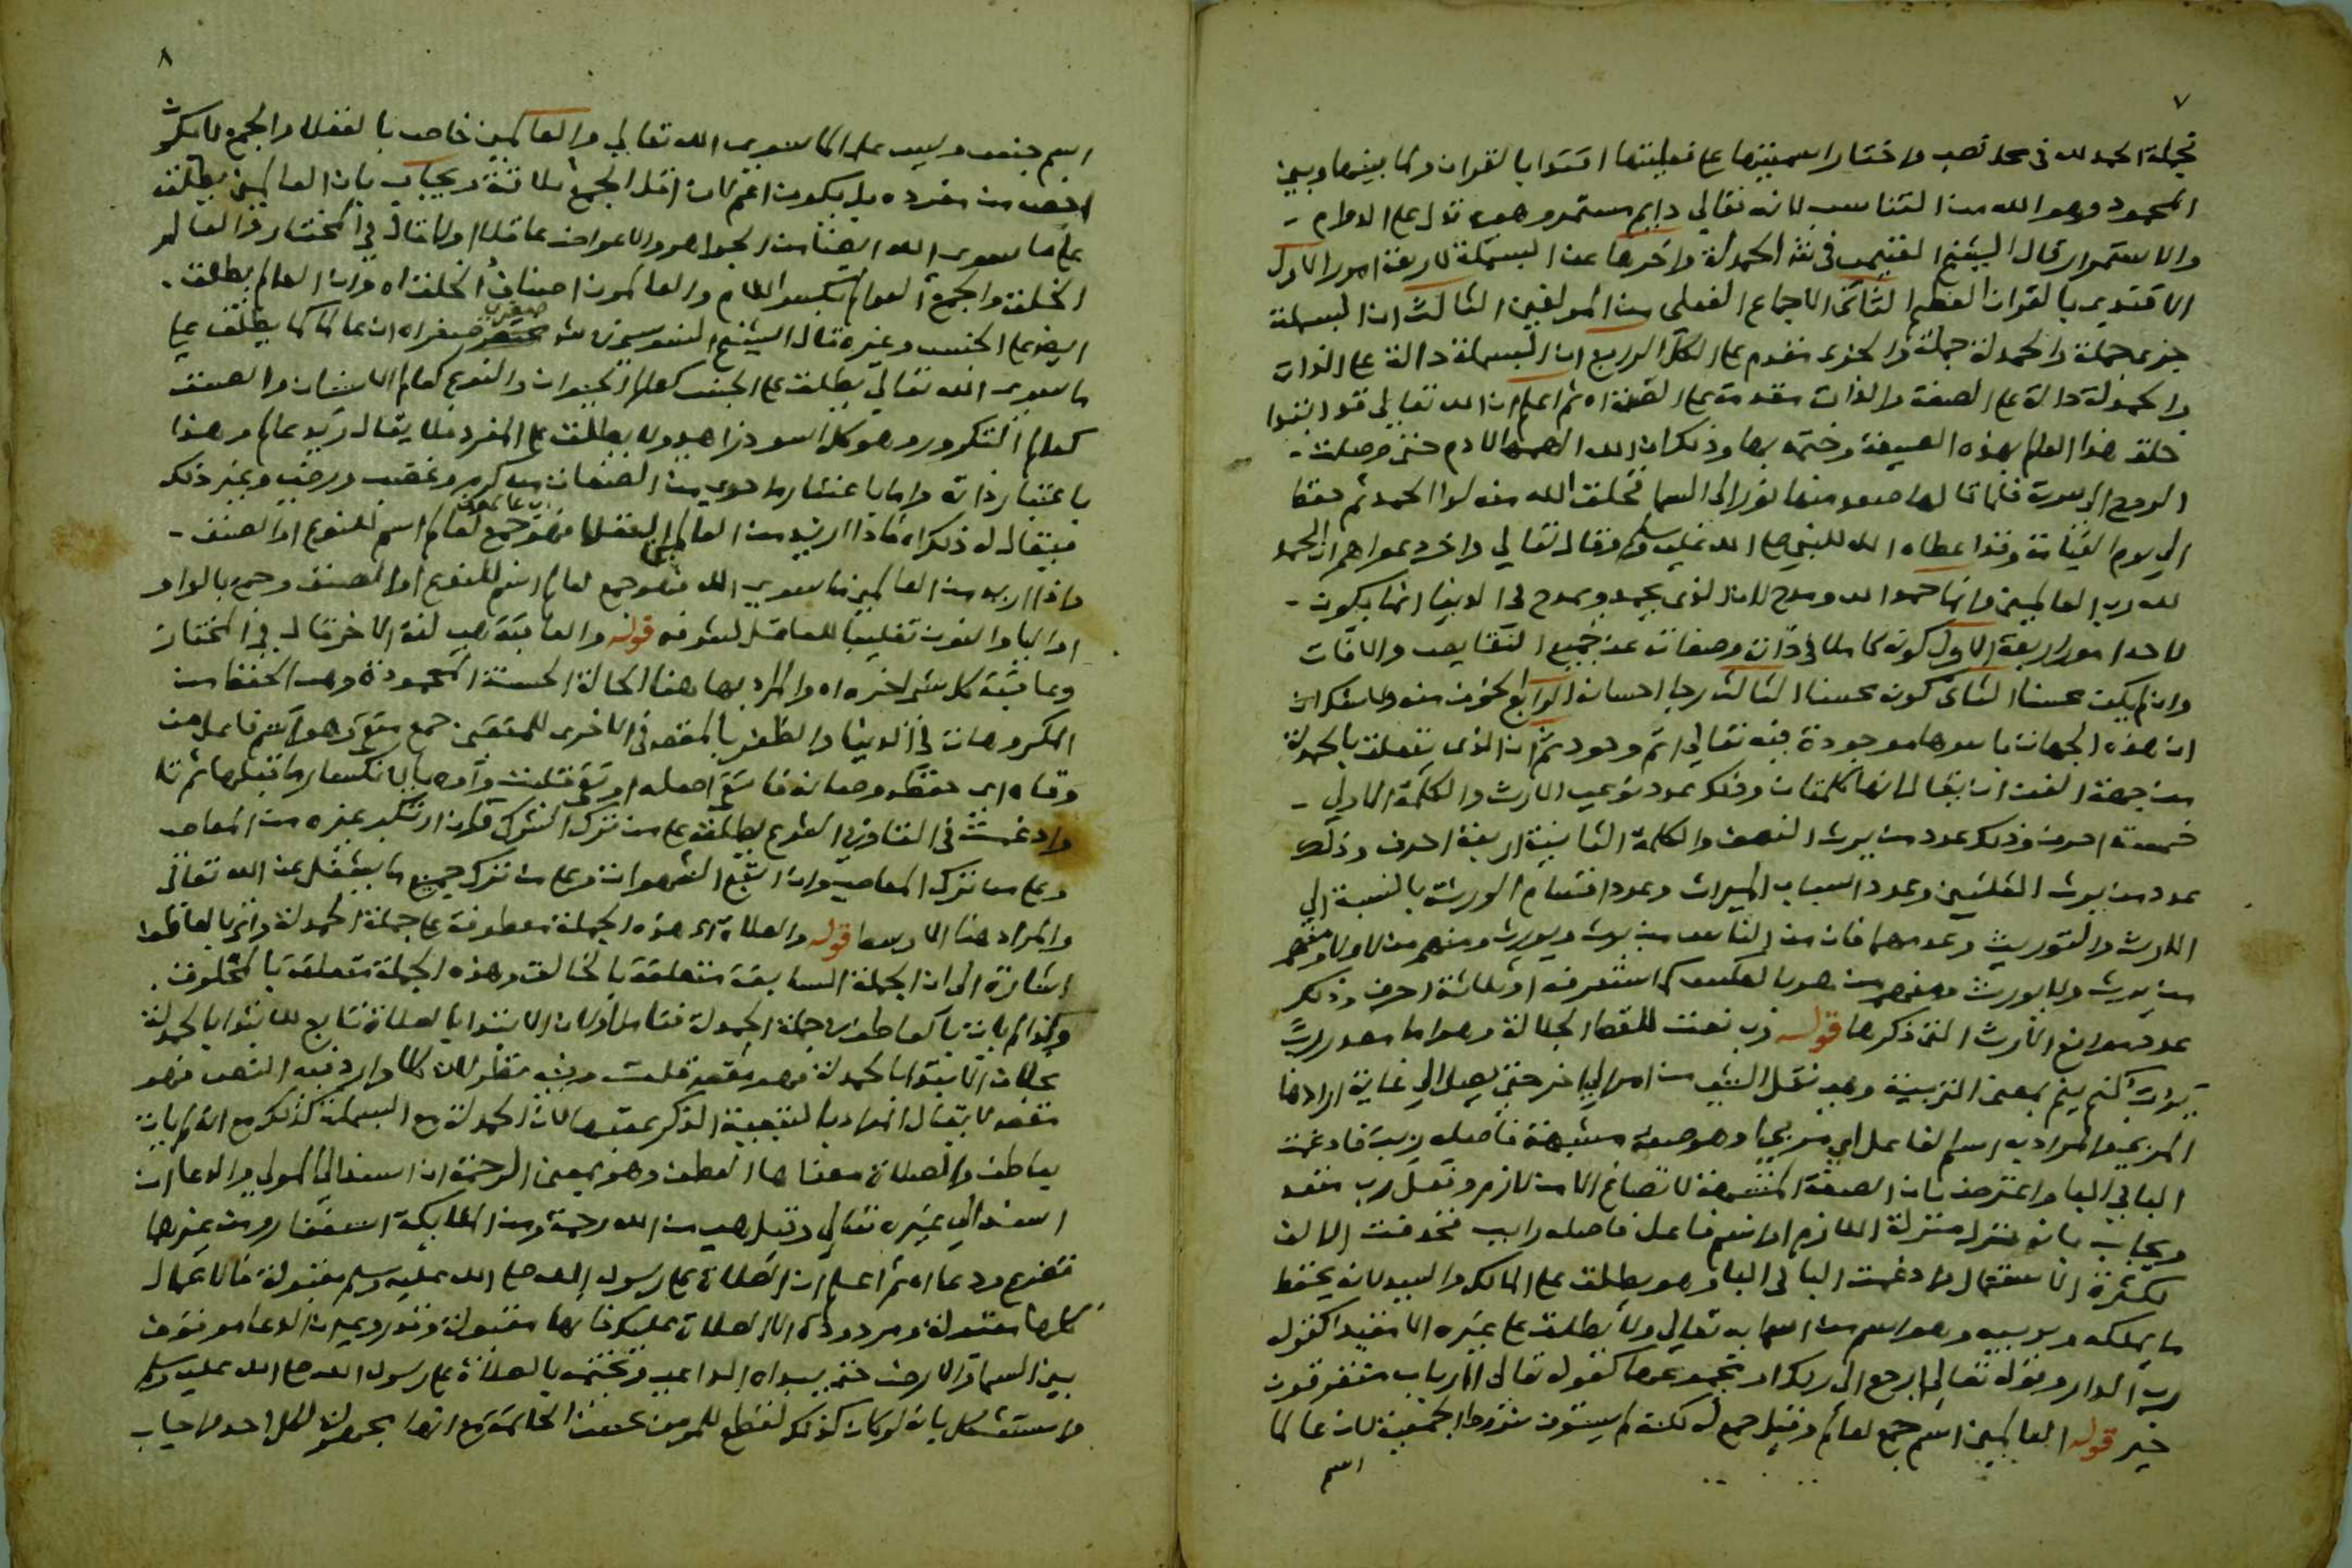 ٧
فجملة الحمد لله في محل نصب واختار اسميتها على فعليتها اقتدا بالقران ولما بينها وبين
المحمود وهو الله من التناسب لانه تعالى دايم مستمر وهي تدل على الدوام
والاستمرار قال الشيخ الفشني في شر الحمدلة واخرها عن البسملة لاربعة امور الاول
الاقتدي بالقران العظيم الثاني الاجماع الفعلي من المولفين الثالث ان البسملة
جزى جملة والحمدلة جملة والجزى مقدم على الكل الرابع ان البسملة دالة على الذات
والحمدلة دالة على الصفة والذات مقدمة على الصفة اه ثم اعلم ان الله تعالى قد ابتدا
خلق هذا العالم بهذه الصيغة وختمه بها وذلك ان الله الهمها لادم حتى وصلت
الروح الى سرته فلما قالها صعد منها نور الى السما فخلق الله منه لوا الحمد ثم حفظ
الى يوم القيامة وقد اعطاه الله للنبي صلى الله عليه وسلم وقال تعالى واخر دعواهم ان الحمد
لله رب العالمين وانما حمد الله ومدح لان الذي يحمد ويمدح في الدنيا انما يكون
لاحد امور اربعة الاول كونه كاملا في ذاته وصفاته عن جميع النقايص والافات
وان لم يكن محسنا الثاني كونه محسنا الثالث رجا احسانه الرابع الخوف منه ولا شك ان
ان هذه الجهات باسرها موجودة فيه تعالى اتم وجود ثم ان الذي يتعلق بالحمدلة
من جهة الفن ان يقال انها كلمتان وذلك عدد نوعي الارث والكلمة الاولى
خمسة احرف وذلك عدد من يرث النصف والكلمة الثانية اربعة احرف وذلك
عدد من يرث الثلثين وعدد اسباب الميراث وعدد اقسام الورثة بالنسبة الى
الارث والتوريث وعدمهما فان من الناس من يرث ويورث ومنهم من لا ولا ومنهم
من يرث ولا يورث ومنهم من هو بالعكس كما ستعرفه او ثلاثة احرف وذلك
عدد موانع الارث التي ذكرها قوله رب نعت للفظ الجلالة وهو اما مصدر ربّ
يربّ كنم ينم بمعنى التربية وهي نقل الشي من امر الى اخر حتى يصل الى غاية ارادها
المربي والمراد به اسم الفاعل اي مربي او هو صفة مشبهة فاصله ربب فادغمت
البا في البا واعترض بان الصفة المشبهة لا تصاغ الا من لازم وفعل رب متعد
ويجاب بانه نزل منزلة اللازم او اسم فاعل فاصله رابب فحذفت الالف
لكثرة الاستعمال وادغمت البا في البا وهو يطلق على المالك والسيد لانه يحفظ
ما يملكه ويربيه وهو اسم من اسمايه تعالى ولا يطلق على غيره الا مقيدا كقوله
رب الدار وقوله تعالى ارجع الى ربك او مجموعا كقوله تعالى اارباب متفرقون
خير قوله العالمين اسم جمع لعالم وقيل جمع له لكنه لم يستوف شروط الجمعية لان عالما
اسم
٨
اسم جنس وليس علما لما سوى الله تعالى والعالمين خاص بالعقلا والجمع لا يكون
اخص من مفرده بل يكون اعم لان اقل الجمع ثلاثة ويجاب بان العالمين يطلق
على ما سوى الله ايضا من الجواهر والاعراض عاقلا او لا قال في المختار والعالم
الخلق والجمع العوالم بكسر اللام والعالمون اصناف الخلق اه وان العالم يطلق
ايضا على الجنس وغيره قال الشيخ السنوسي في شر صغرى صغراه ان عالما كما يطلق على
ما سوى الله تعالى يطلق على الجنس كعالم الحيوان والنوع كعالم الانسان والصنف
كعالم التكرور وهو كل اسود زاهد ولا يطلق على المفرد فلا يقال زيد عالم وهذا
باعتبار ذاته واما باعتبار ما حوى من الصفات من كرم وغضب ورضى وغير ذلك
فيقال له ذلك اه فاذا اريد من العالمين العقلا فهو جمع لعالم اسم للنوع او الصنف
واذا اريد من العالمين ما سوى الله فهو جمع لعالم اسم للنوع او الصنف وجمع بالواو
او اليا والنون تغليبا للعاقل لشرفه قوله والعاقبة هي لغة الاخر قال في المختار
وعاقبة كل شي اخره اه والمراد بها هنا الحالة الحسنة المحمودة وهي الحفظ من
المكروهات في الدنيا والظفر بالمقصد في الاخرى للمتقين جمع متق وهو اسم فاعل من
وقاه اي حفظه وصانه فاتقى اصله اوتقى قلبت واوه يا لانكسار ما قبلها ثم تا
وادغمت في التا وفي الشرع يطلق على من ترك الشرك وان ارتكب غيره من المعاصي
وعلى من ترك المعاصي وان اتبع الشهوات وعلى من ترك جميع ما يشغل عن الله تعالى
والمراد هنا الاوسط قوله والصلاة اي هذه الجملة معطوفة على جملة الحمدلة واتى بالعاطف
اشارة الى ان الجملة السابقة متعلقة بالخالق وهذه الجملة متعلقة بالمخلوق
وانما لم يات بالعاطف في جملة الحمدلة فتامل اولان الابتدا بالصلاة تابع للابتدا بالحمدلة
بخلاف الابتدا بالحمدلة فهو مقصود قلت وفيه نظر لان كلا وارد فيه النص فهو
مقصد لا يقال المراد بالتبعية الذكر عقبها لان الحمدلة مع البسملة كذلك مع انه لم يات
بعاطف والصلاة معناها العطف وهو بمعنى الرحمة ان اسند الى المولى والدعا ان
اسند الى غيره تعالى وقيل هي من الله رحمة ومن الملايكة استغفار ومن غيرها
تضرع ودعا اه ثم اعلم ان الصلاة على رسول الله صلى الله عليه وسلم مقبولة فالاعمال
كلها مقبولة ومردودة الا الصلاة عليك فانها مقبولة وقد روي ان الدعا موقوف
بين السما والارض حتى يبداه الداعي ويختمه بالصلاة على رسول الله صلى الله عليه وسلم
واستشكل بانه لو كان كذلك لقطع للمومن بحسن الخاتمة مع انها مجهولة لكل احد واجاب